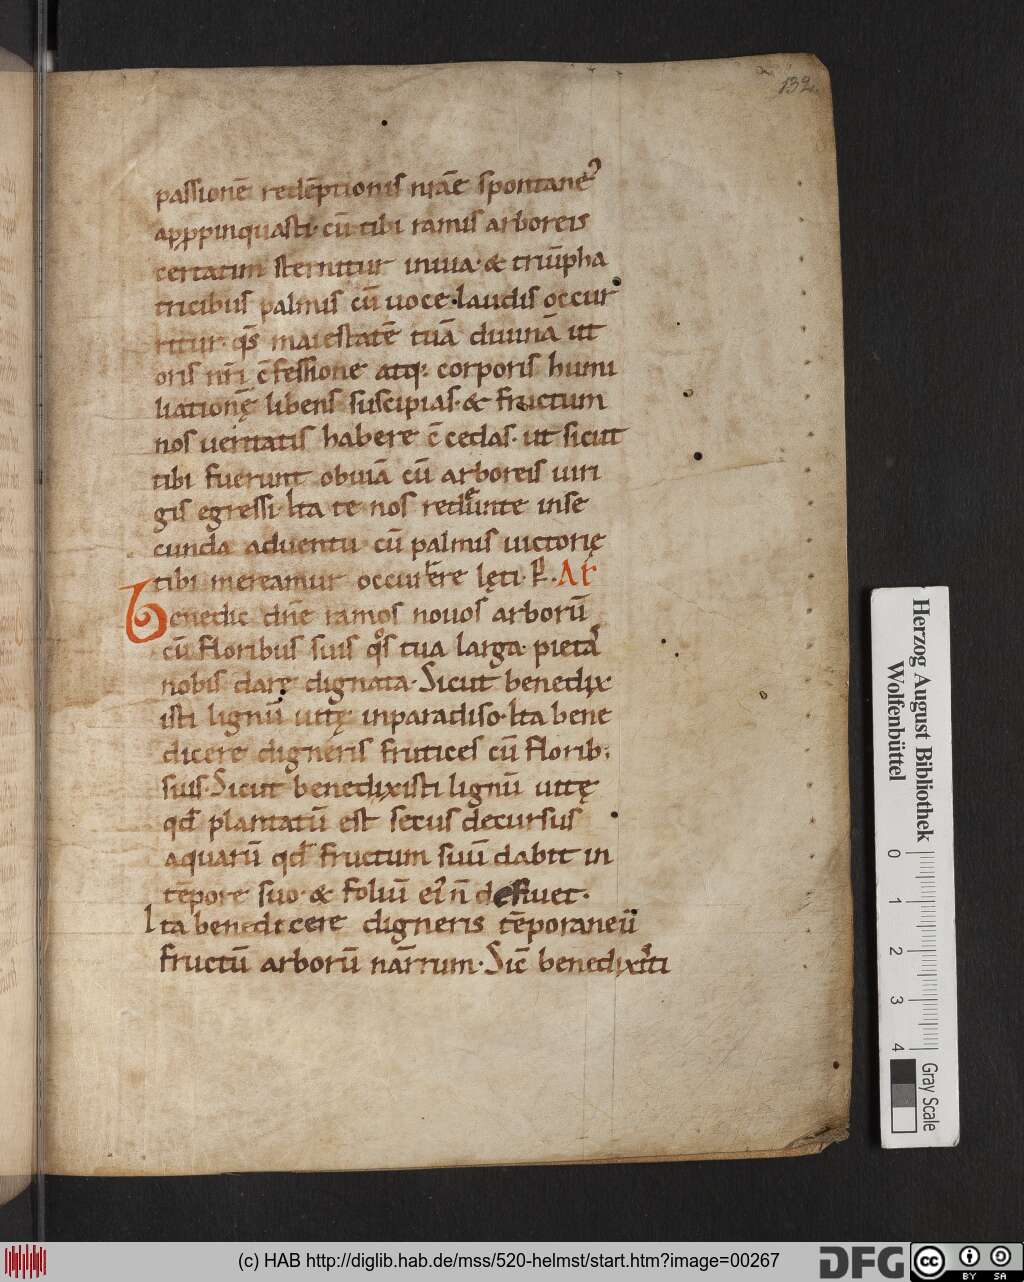 132
passionē redēptionis nr̄āe spontane᷒
apppinquasti· cū tibi ramis arboreis
certatim sternitur in uia· & triūpha
tricibus palmis cū uoce laudis occur
ritur· qs̄ maiestatē tuā diuinā ut
oris nr̄i c̄fessione atq; corporis humi
liationę libens suscipias· & fructum
nos ueritatis habere c̄cedas· ut sicut
tibi fuerunt obuiā cū arboreis uiri
gis egressi· Ita te nos redeunte in se
cunda aduentu cū palmis uictorię
tibi mereamur occurrere lęti· P̄· Al̄
Benedic dn̄e ramos nouos arborū
cū floribus suis qͦs tua larga pietas
nobis dare dignata· Sicut benedix
isti lignū uitę in paradiso· Ita bene
dicere digneris frutices cū florib;
suis· Sicut benedixisti lignū uitę
qd̄ plantatū est secus decursus
aquarū qd̄ fructum suū dabit in
tēpore suo· & foliū ei᷒ n̄ defluet·
Ita benedicere digneris tēporaneū
fructū arborū nr̄arum· Sic̄ benedixisti
Herzog August Bibliothek
Wolfenbüttel
0 1 2 3 4
Gray Scale
(c) HAB http://diglib.hab.de/mss/520-helmst/start.htm?image=00267
DFG
cc BY SA